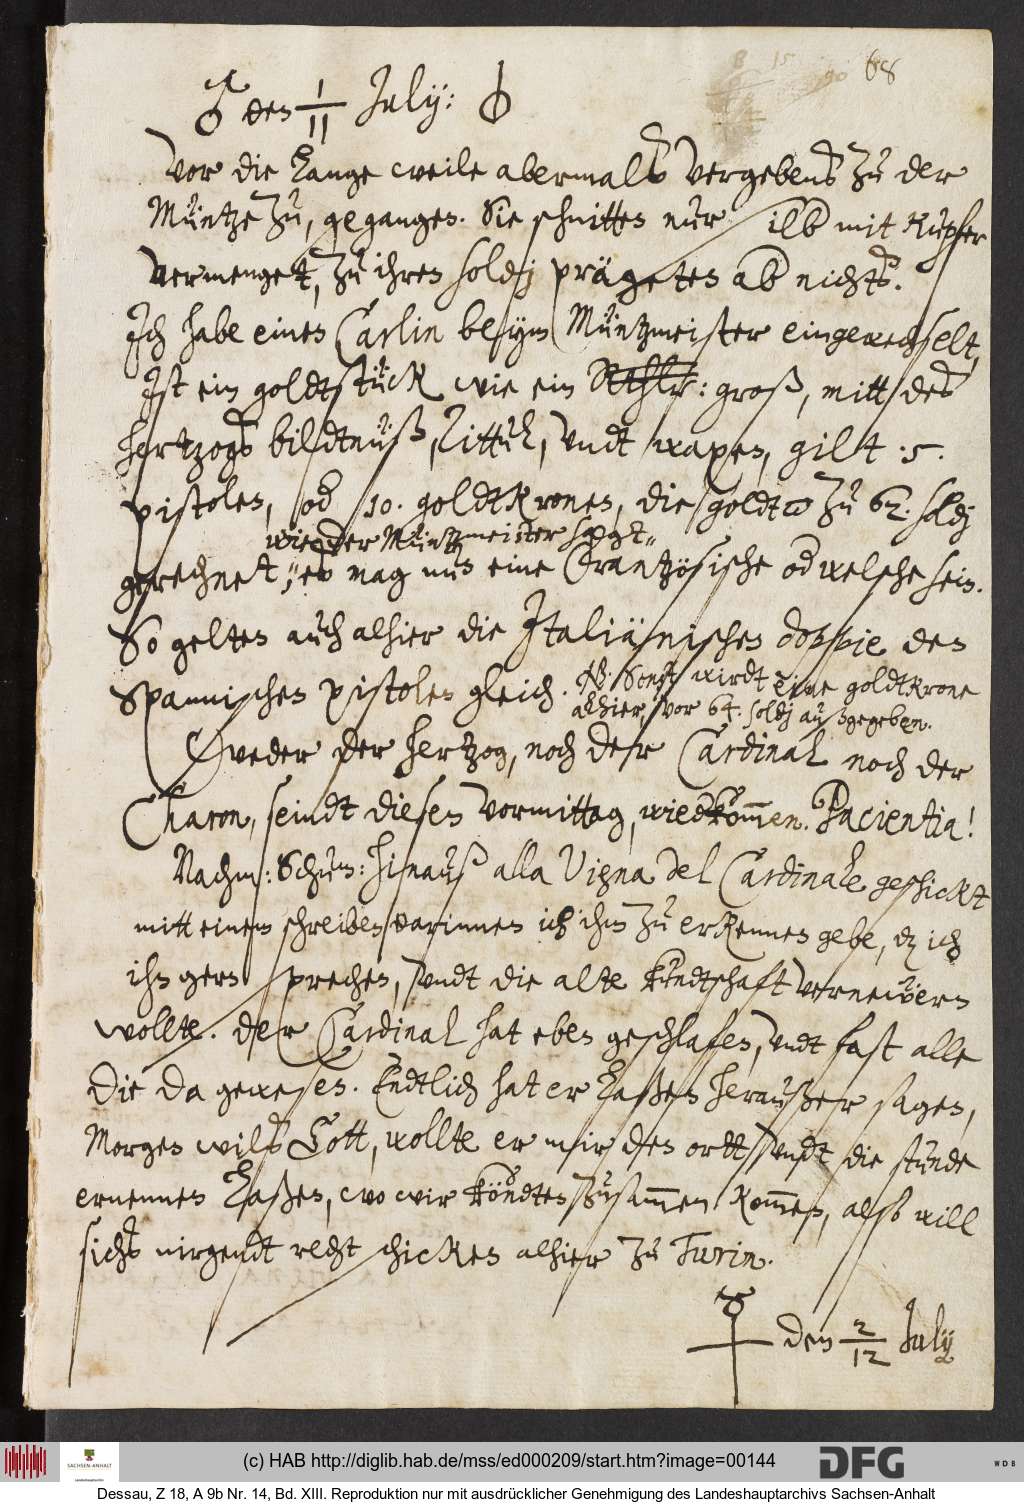 68
♂ den 1/11 July:
Vor die lange weile abermals vergebens zu der
Müntze zu, gegangen. Sie schnitten nur silb mit Kupfer
vermenget, zu ihren soldj prägeten ab nichts.
Ich habe einen Carlin beym Müntzmeister eingewechselt,
Ist ein goldtstück wie ein Rthlr: groß, mitt des
hertzogs bildtnüß, Tittul, vndt wapen, gilt .5.
pistolen, od 10. goldtkronen, die goldt zu 62. soldj
wie der Müntzmeister sagt„
gerechnet, es mag nun eine frantzösische od welsche sein.
So gelten auch alhier die Italiänischen doppie den
Spannischen pistolen gleich. NB: Sonst wirdt eine goldtkrone
alhier, vor 64. soldj außgegeben.
Weder der hertzog, noch der Cardinal noch der
Charon, seindt diesen Vormittag, wiedkommen. Pacientia!
Nachm: Schum: hinauß alla Vigna del Cardinale geschickt
mitt einem schreiben darinnen ich ihm zu erkennen gebe, dz ich
ihn gern sprechen, vndt die alte kundtschaft vernewern
wollte. der Cardinal hat eben geschlafen, vndt fast alle
die da gewesen. Endtlich hat er laßen heraußer sagen,
Morgen wils Gott, wollte er mir den ortt, vndt die stunde
ernennen laßen, wo wir köndten zusammen kommen, also will
sichs nirgendt recht schicken alhier zu Turin.
den 2/12 July
(c) HAB http://diglib.hab.de/mss/ed000209/start.htm?image=00144
SACHSEN-ANHALT
DFG
WDB
Dessau, Z 18, A 9b Nr. 14, Bd. XIII. Reproduktion nur mit ausdrücklicher Genehmigung des Landeshauptarchivs Sachsen-Anhalt